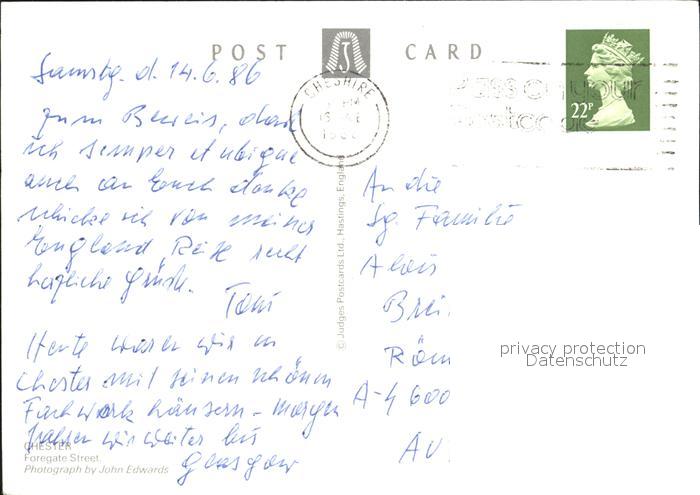 POST CARD
Samstg. d. 14.6.86
CHESHIRE
1986
22P
zum Beweis, daß
ich semper et ubique
auch an Euch denke
schicke ich von meiner
England Reise recht
herzliche Grüße.
Toni
Heute waren wir in
Chester mit seinen schönen
Fachwerkhäusern - morgen
fahren wir weiter bis
Glasgow
© Judges Postcards Ltd., Hastings, England
An die
Sg. Familie
Alois
Brei
Röm
A-4600
Au
privacy protection
Datenschutz
CHESTER
Foregate Street.
Photograph by John Edwards